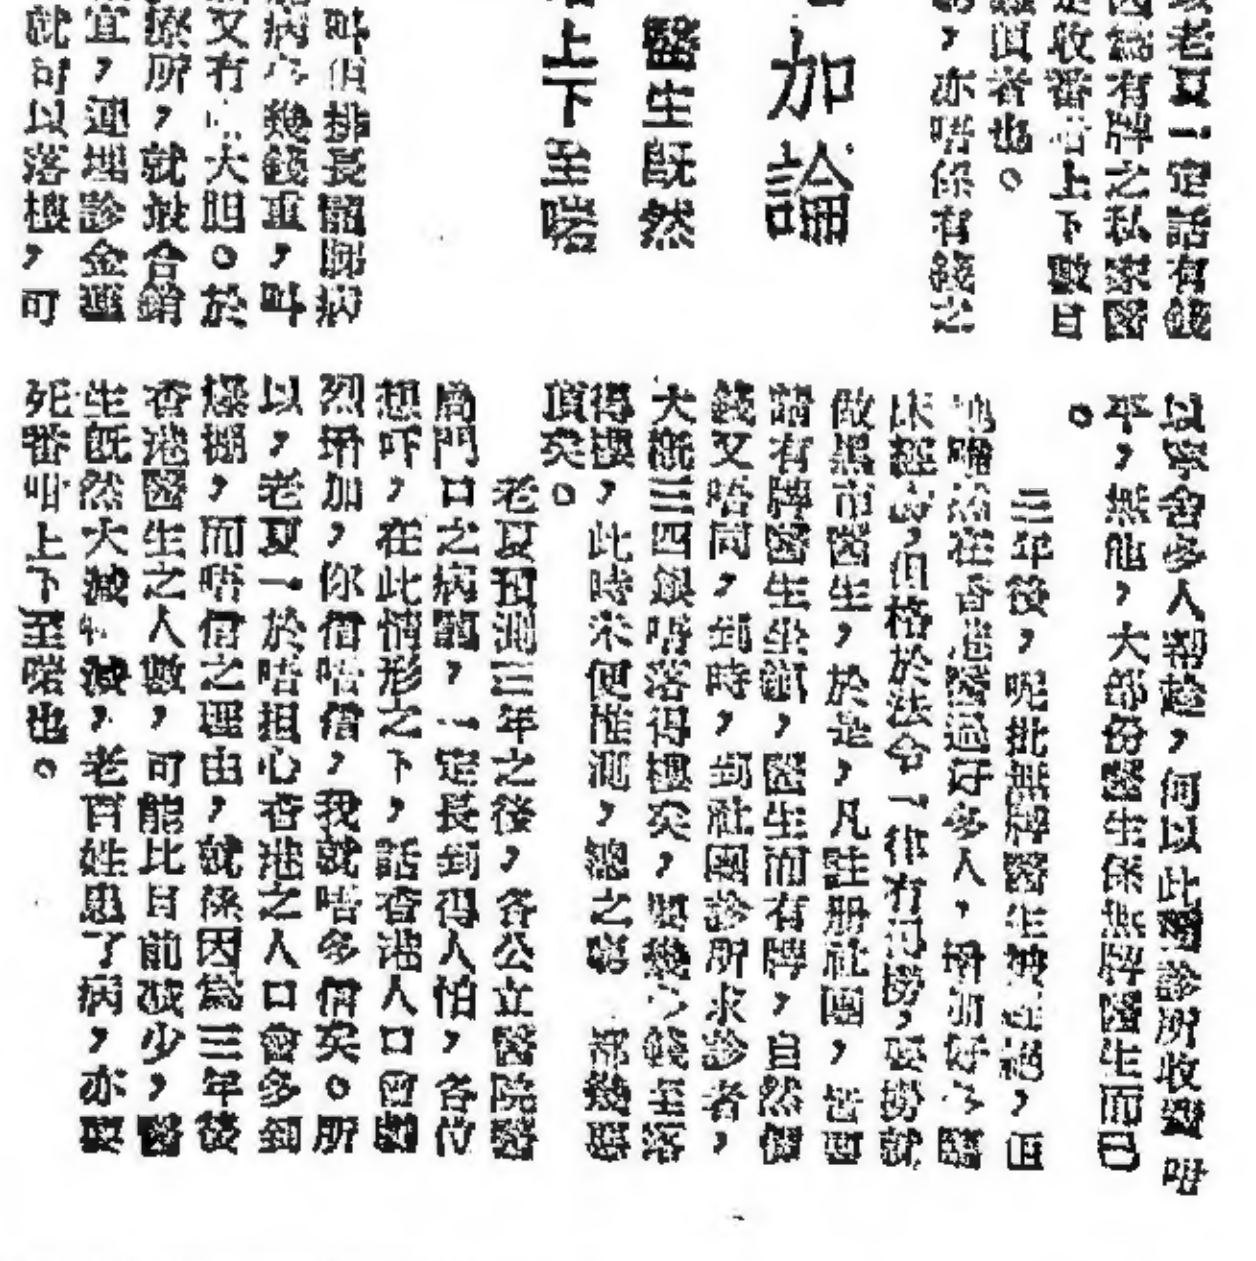 老夏一定話有錢
因爲有牌之私家醫
收番啱上下數目
頂者也。
，亦唔係有錢之
加論
醫生既然
上下至啱
叫佢排長龍睇病
病 幾錢重，叫
又有 大胆。於
療所，就最合銷
宜，連埋診金連
就可以落樓，可
以寧舍多人幫趁，何以此 診所收 咁
平，無他，大部份醫生係無牌醫生而已
。
三年後，呢批無牌醫生 絕，但
唔 在香港醫過好多人，增加好多臨
床經 ，但格於法令一律冇得撈，要撈就
做黑市醫生，於是，凡註册社團，皆要
請有牌醫生坐鎮，醫生而有牌，自然價
錢又唔同，到時，到社團診所求診者，
大概三四銀唔落得樓矣，要幾多錢至落
得樓，此時未便推測，總之 都幾 
頂矣。
老夏預測三年之後，各公立醫院醫
局門口之病龍，一定長到得人怕，各位
想吓，在此情形之下，話香港人口會劇
烈增加，你信唔信，我就唔多信矣。所
以，老夏一於唔担心香港之人口會多到
爆棚，而唔信之理由，就係因爲三年後
香港醫生之人數，可能比目前減少，醫
生既然大減 減，老百姓患了病，亦要
死番咁上下至啱也。